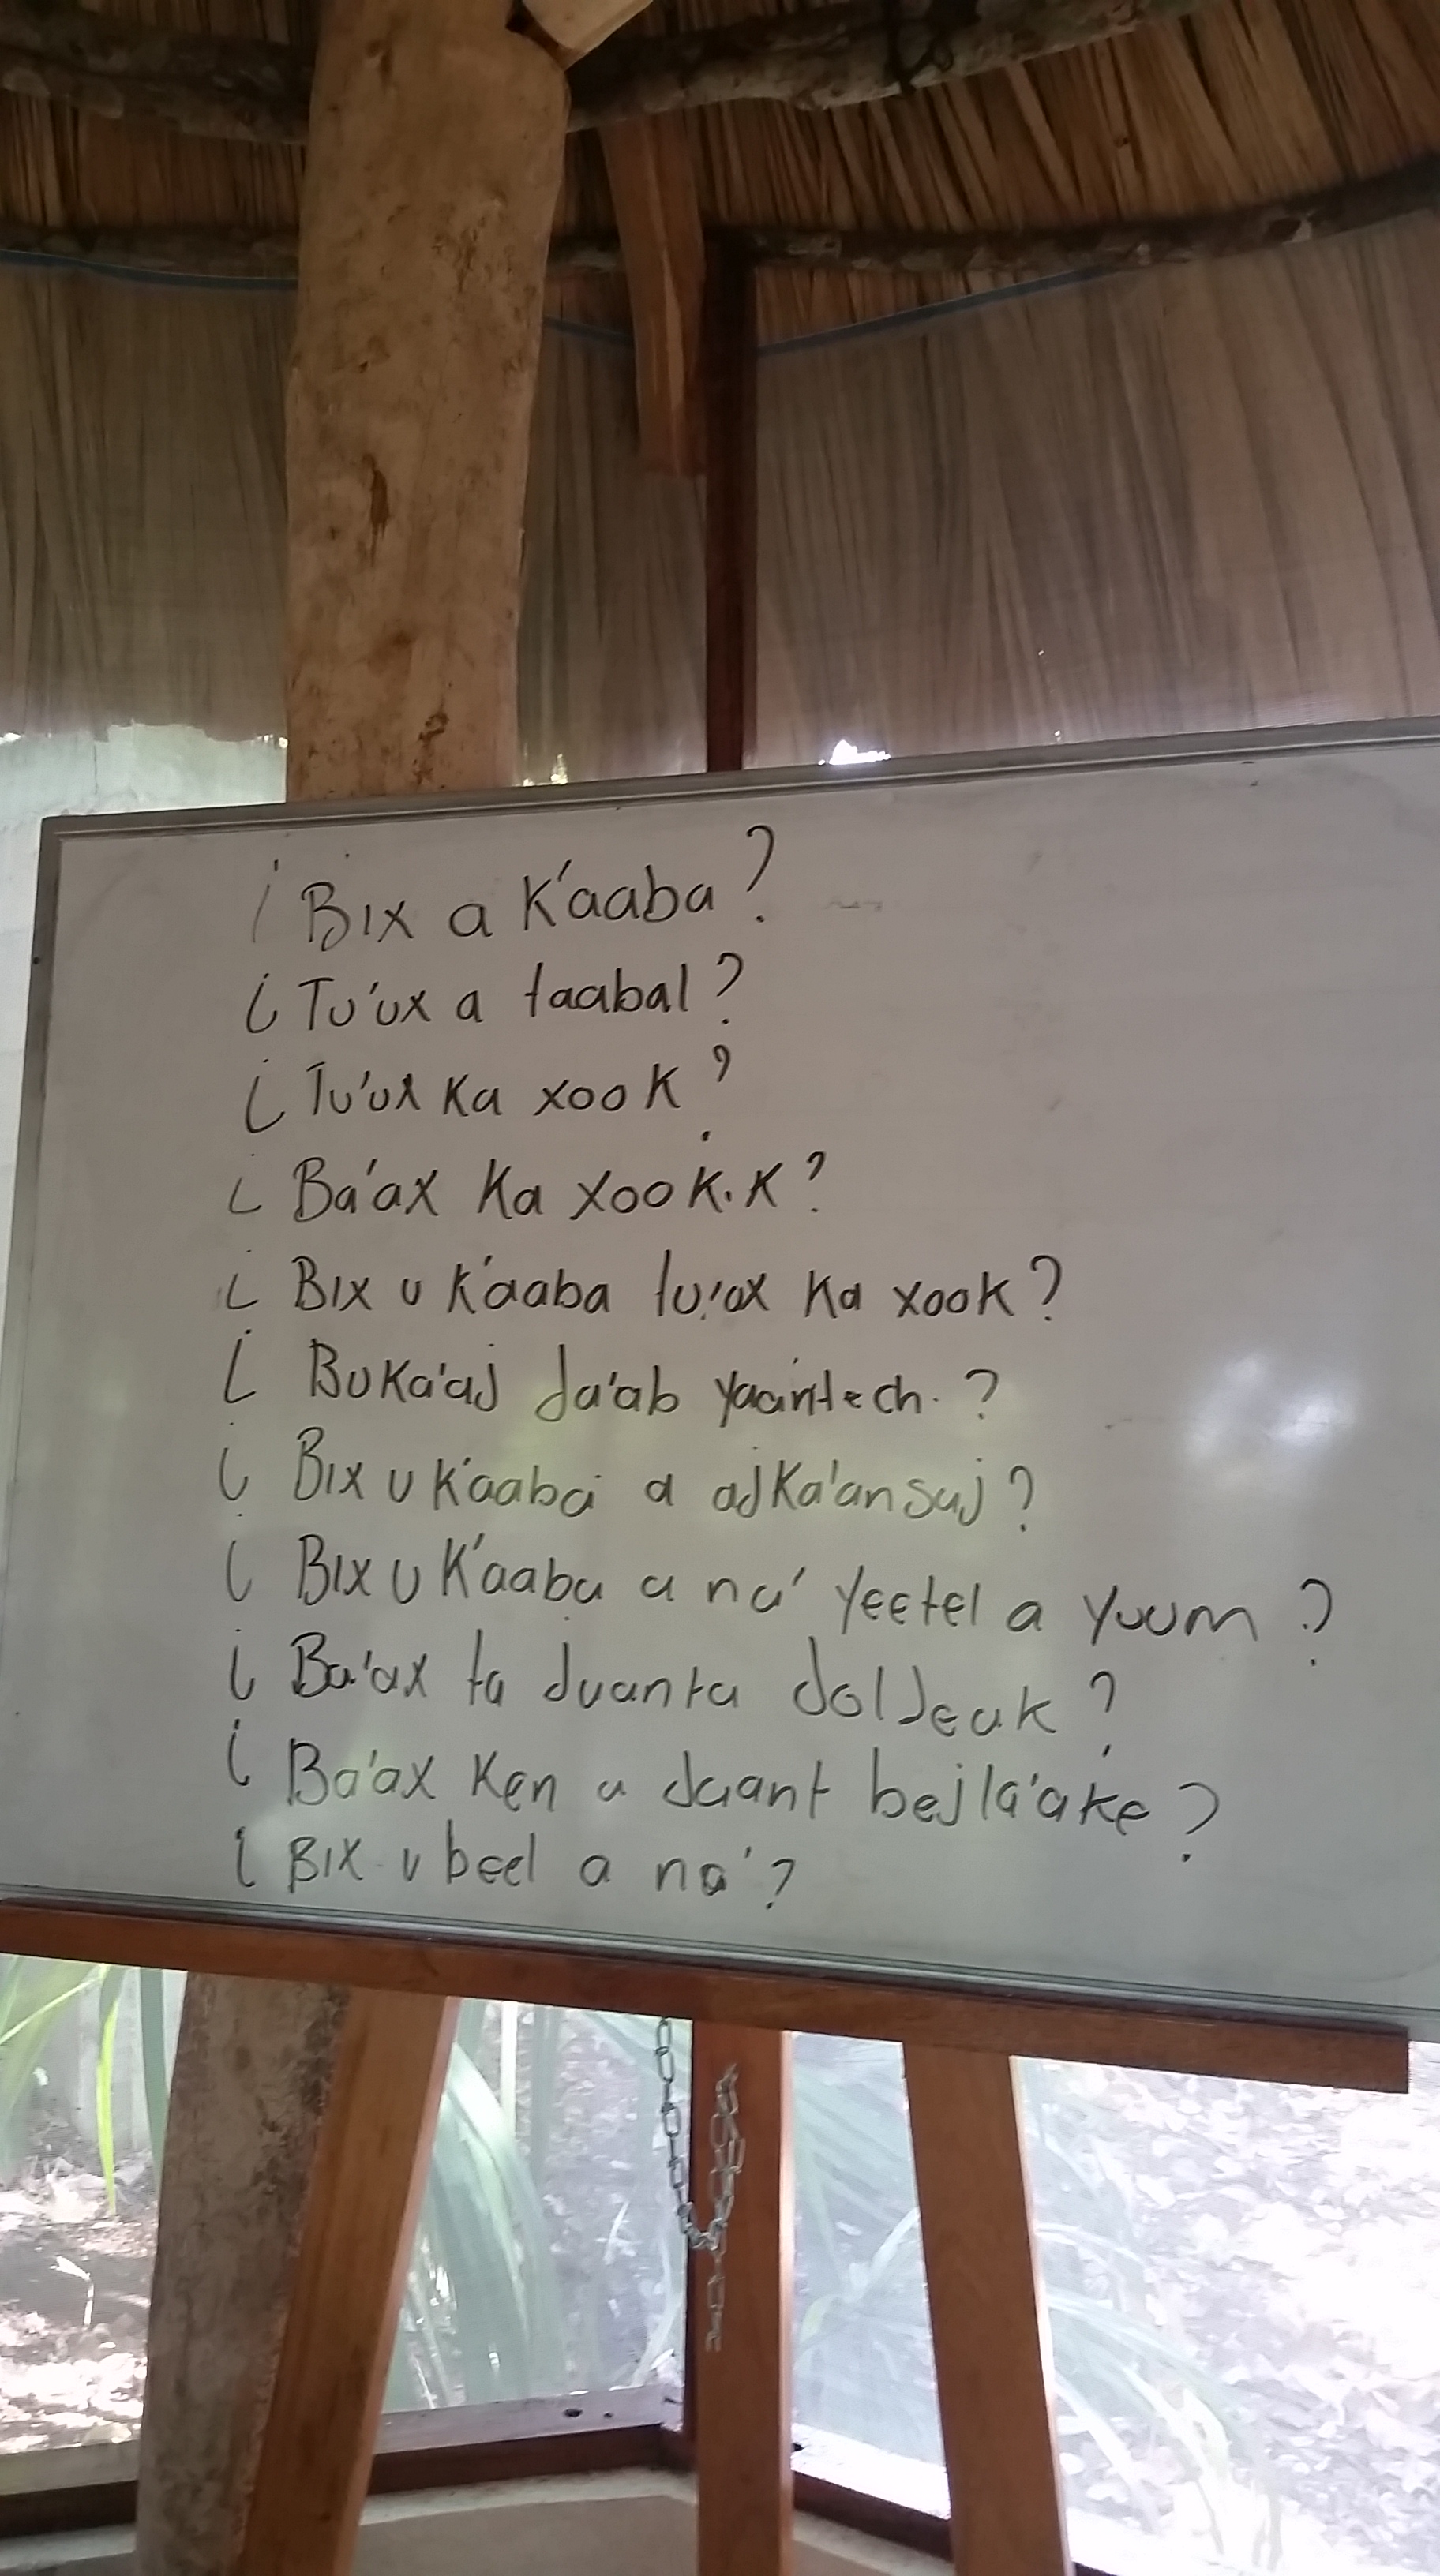 ¿Bix a k'aaba?
¿Tu'ux a taabal?
¿Tu'ux ka xook?
¿Ba'ax ka xook.k?
¿Bix u k'aaba tu'ux ka xook?
¿Buka'aj ja'ab yaantech.?
¿Bix u k'aaba a ajka'ansaj?
¿Bix u k'aaba a na' yeetel a yuum?
¿Ba'ax ta juanta joljeak?
¿Ba'ax ken a jaant bejla'ake?
¿Bix u beel a na'?